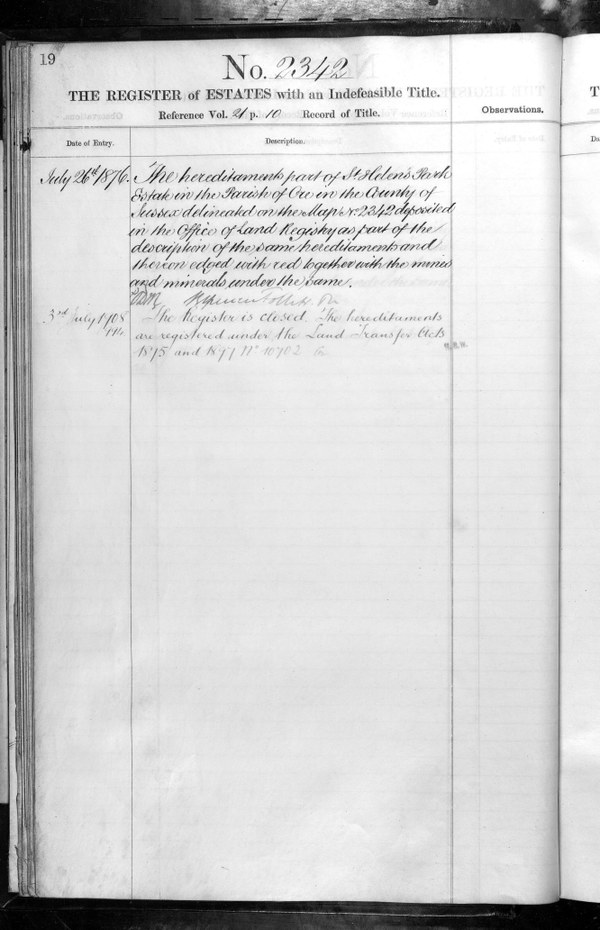 19
No. 2342
THE REGISTER of ESTATES with an Indefeasible Title.
Reference Vol. 21 p. 10 Record of Title.
Observations.
Date of Entry.
Description.
July 26th 1876. The hereditaments part of St. Helen's Park
Estate in the Parish of Ore in the County of
Sussex delineated on the Map No. 2342 deposited
in the Office of Land Registry as part of the
description of the same hereditaments and
thereon edged with red together with the mines
and minerals under the same.
Follett
3rd July 1908 The Register is closed. The hereditaments
are registered under the Land Transfer Acts
1875 and 1897 No. 10702